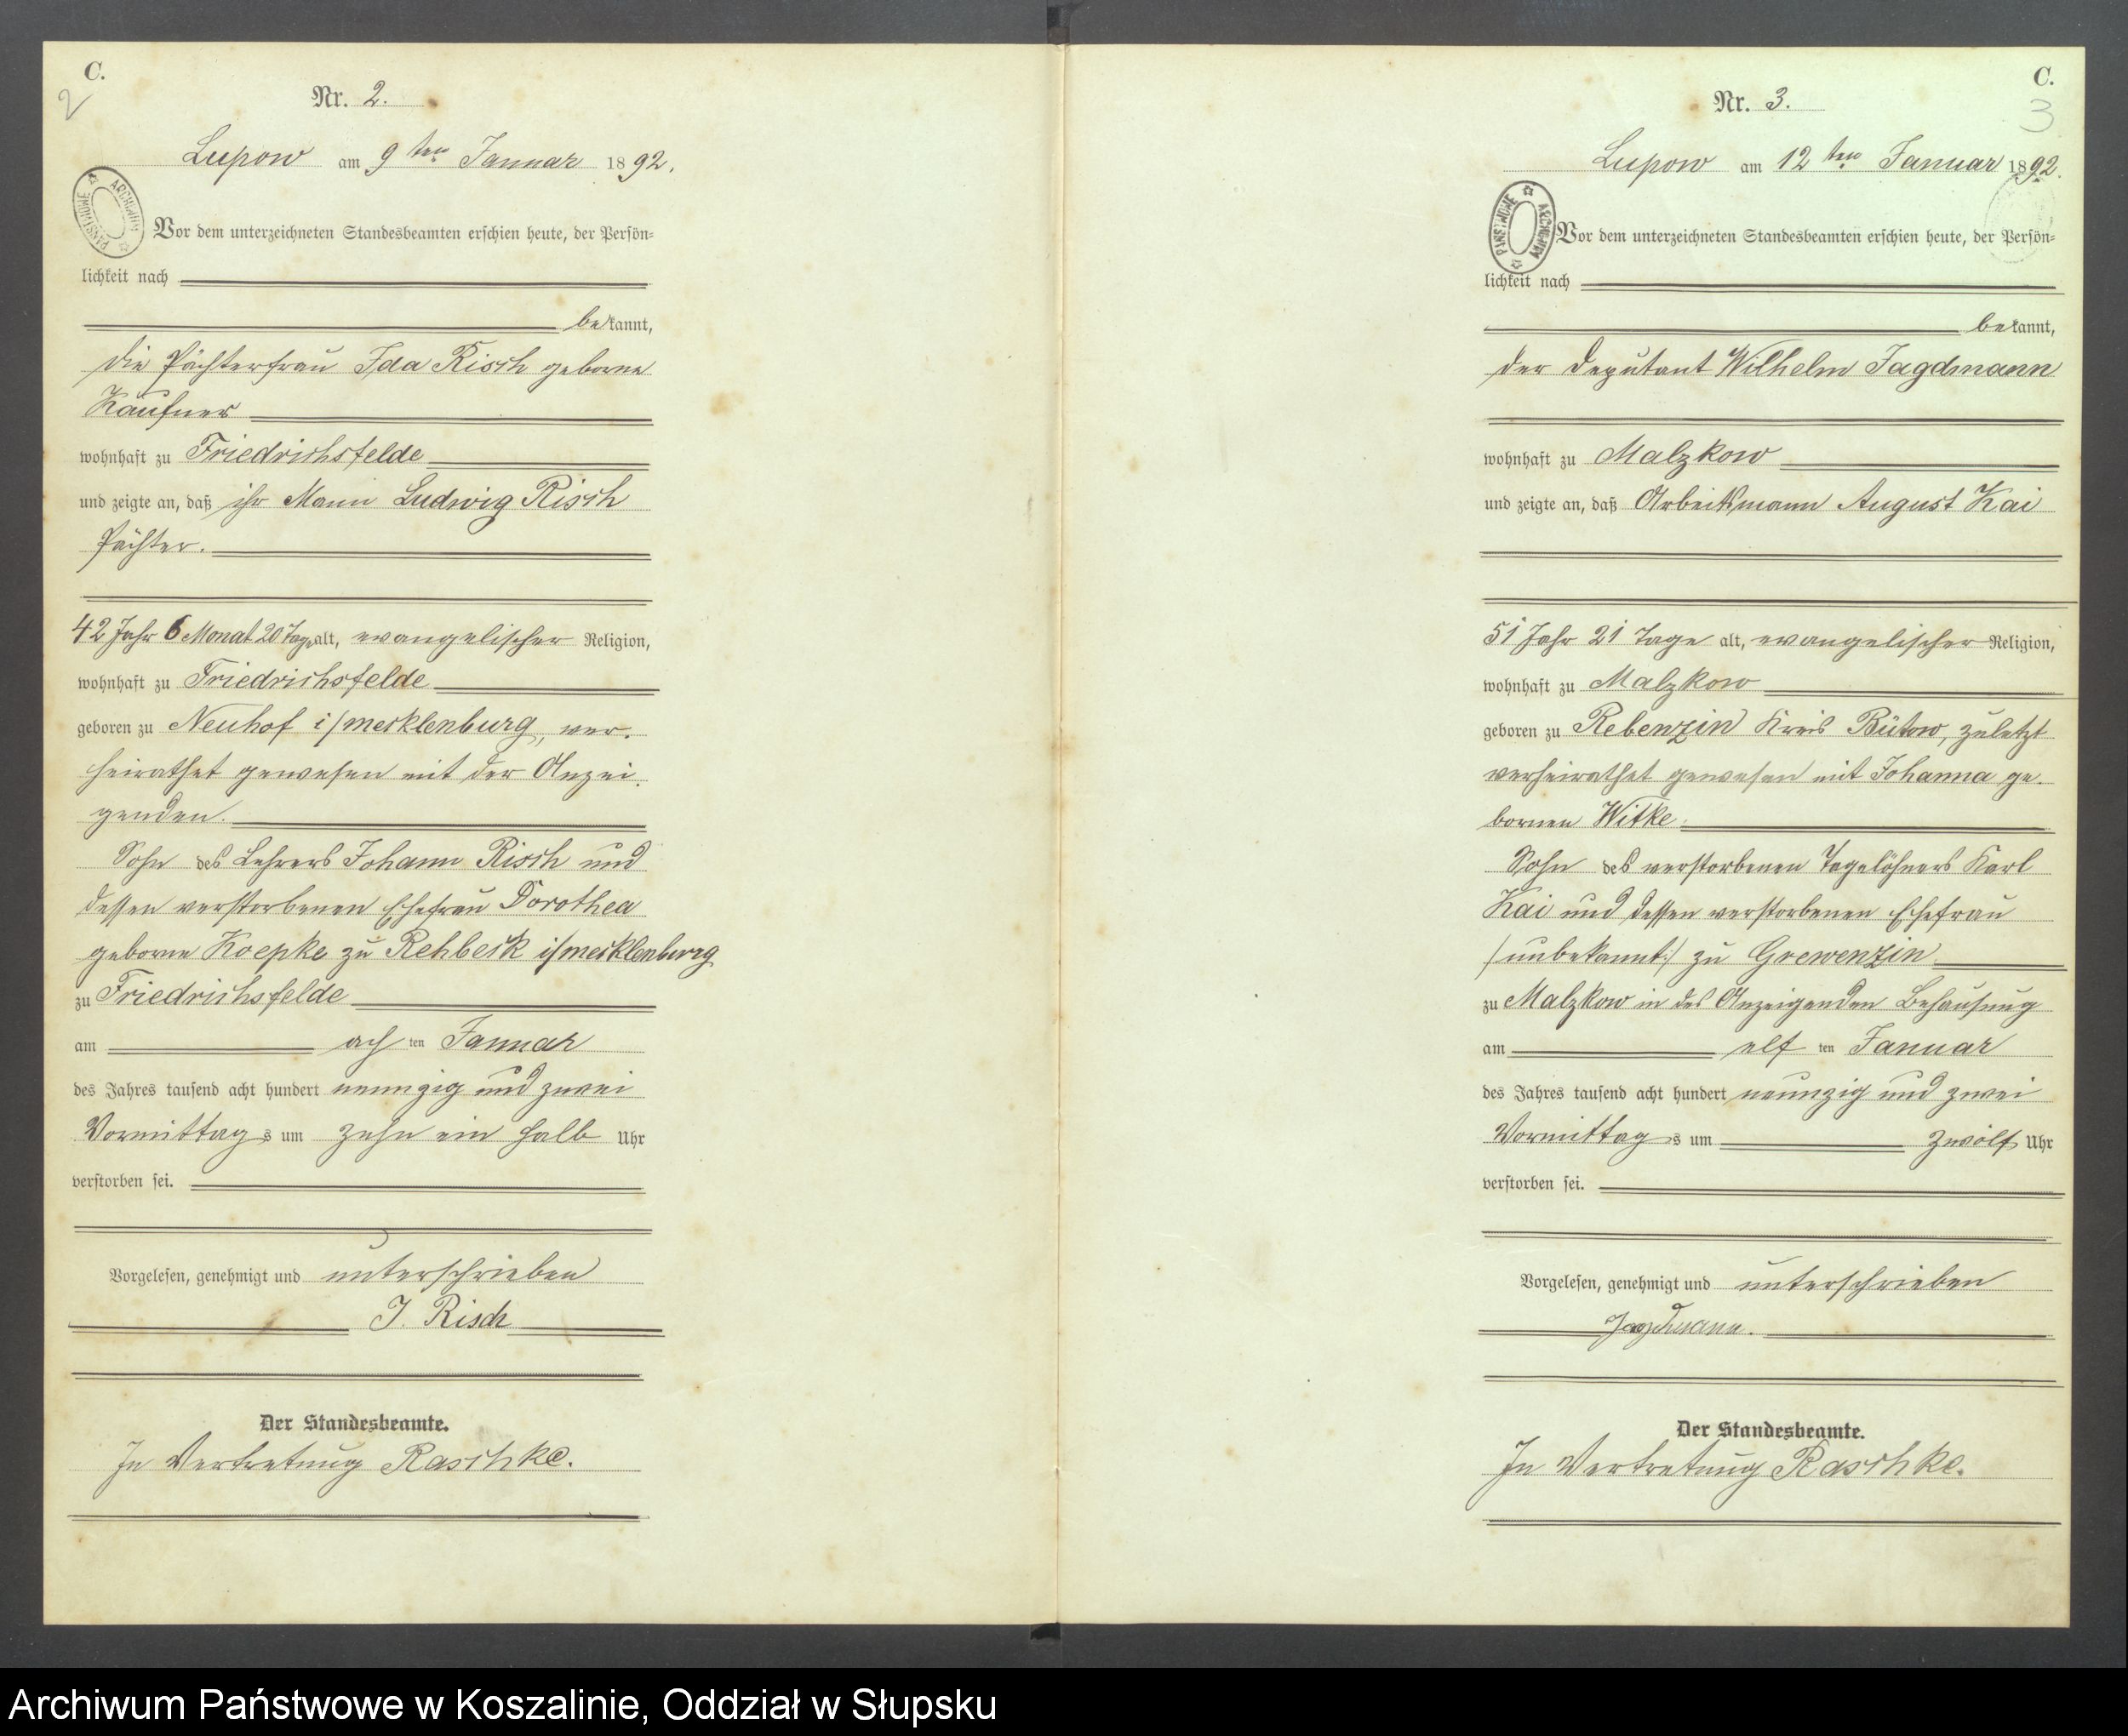 C.
2
Nr. 2.
Lupow am 9ten Januar 1892.
ARCHIWUM PAŃSTWOWE
Vor dem unterzeichneten Standesbeamten erschien heute, der Persön-
lichkeit nach
bekannt,
die Pächterfrau Ida Risch geborne
Kaufner
wohnhaft zu Friedrichsfelde
und zeigte an, daß ihr Mann Ludwig Risch
Pächter.
42 Jahr 6 Monat 20 Tage alt, evangelischer Religion,
wohnhaft zu Friedrichsfelde
geboren zu Neuhof i/mecklenburg, ver-
heirathet gewesen mit der Anzei-
genden.
Sohn des Lehrers Johann Risch und
dessen verstorbenen Ehefrau Dorothea
geborne Koepke zu Rehbeck i/mecklenburg
zu Friedrichsfelde
am ach ten Januar
des Jahres tausend acht hundert neunzig und zwei
Vormittags um zehn ein halb Uhr
verstorben sei.
Vorgelesen, genehmigt und unterschrieben
I. Risch
Der Standesbeamte.
In Vertretung Raschke.
C.
3
Nr. 3.
Lupow am 12ten Januar 1892.
ARCHIWUM PAŃSTWOWE
Vor dem unterzeichneten Standesbeamten erschien heute, der Persön-
lichkeit nach
bekannt,
der Deputant Wilhelm Jagdmann
wohnhaft zu Malzkow
und zeigte an, daß Arbeitsmann August Kai
51 Jahr 21 Tage alt, evangelischer Religion,
wohnhaft zu Malzkow
geboren zu Rebenzin Kreis Bütow, zuletzt
verheirathet gewesen mit Johanna ge-
bornen Witke.
Sohn des verstorbenen Tagelöhners Karl
Kai und dessen verstorbenen Ehefrau
/:unbekannt:/ zu Grewenzin
zu Malzkow in des Anzeigenden Behausung
am elf ten Januar
des Jahres tausend acht hundert neunzig und zwei
Vormittags um zwölf Uhr
verstorben sei.
Vorgelesen, genehmigt und unterschrieben
Jagdmann.
Der Standesbeamte.
In Vertretung Raschke.
Archiwum Państwowe w Koszalinie, Oddział w Słupsku